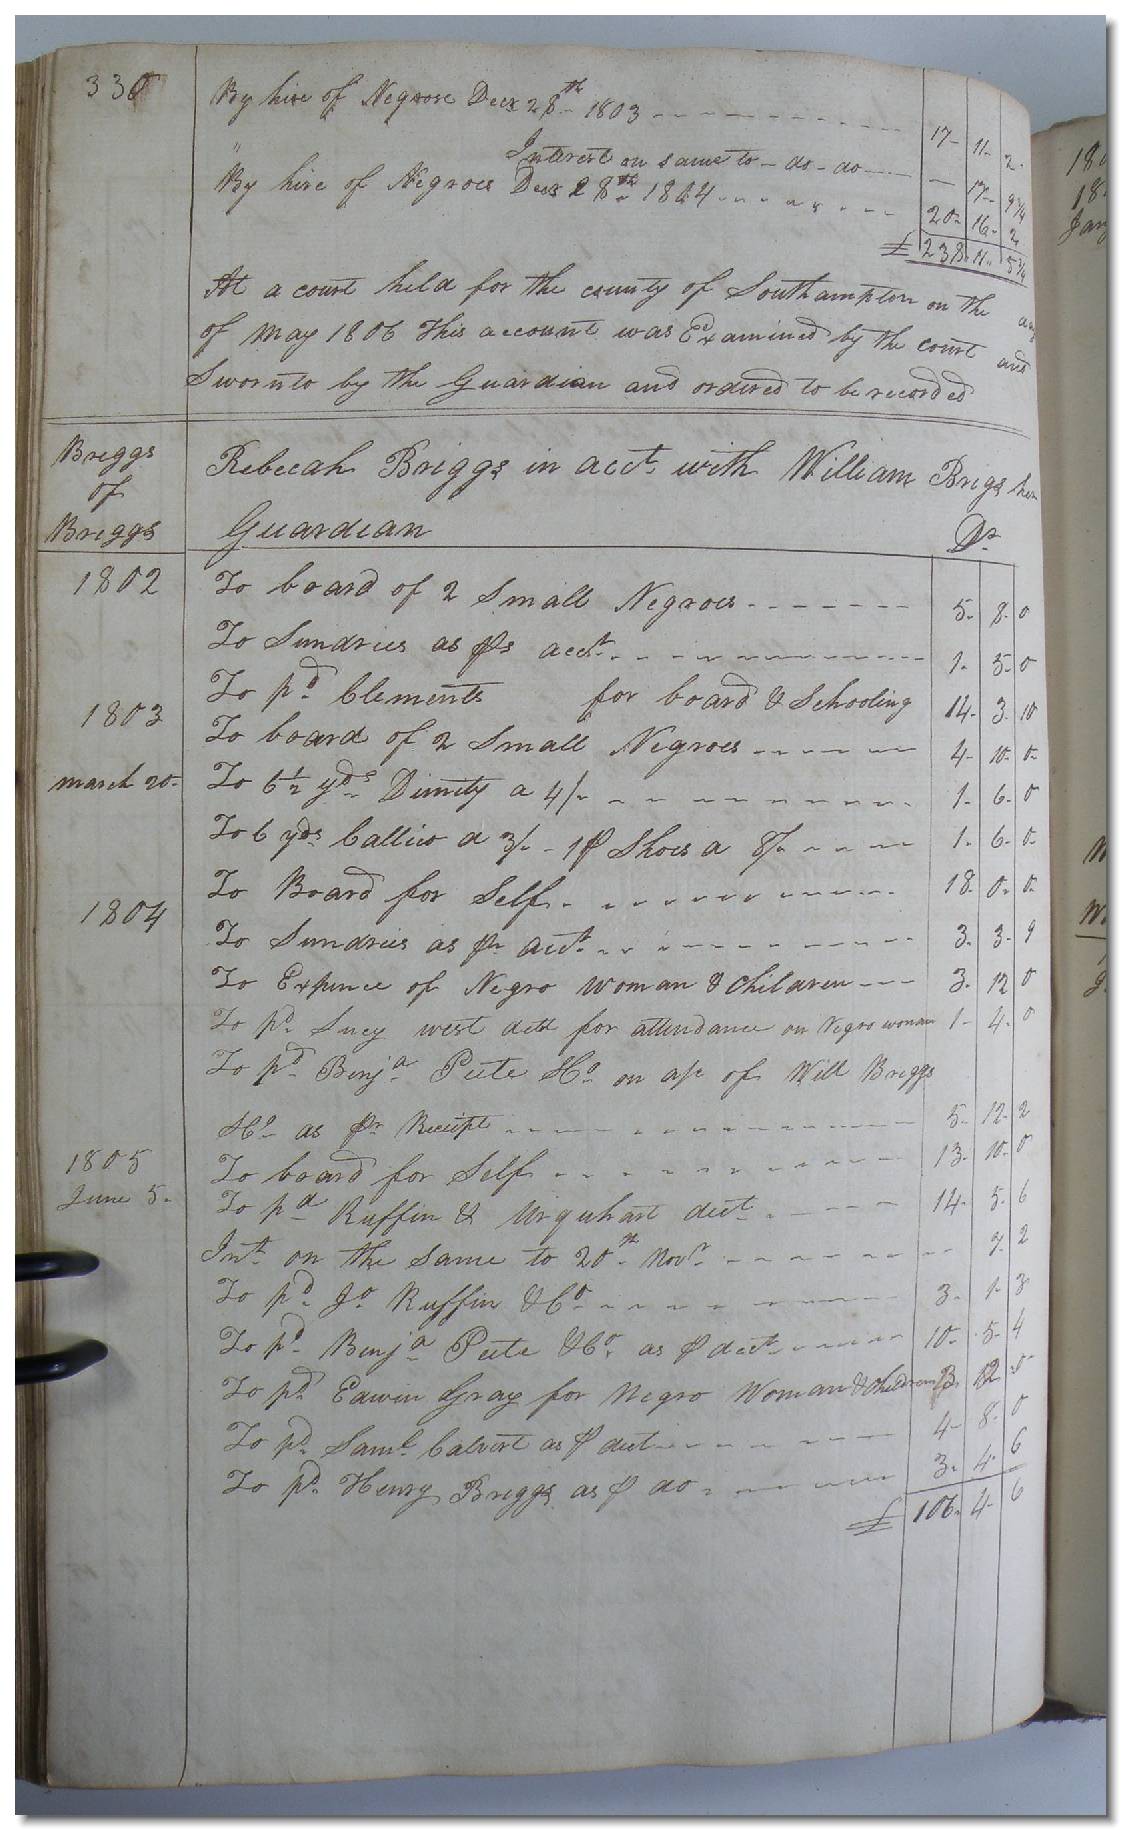 330
By hire of Negroes Decr 28th 1803 17- 11- 2-
" Interest on same to - do - do - 17- 9 3/4
By hire of Negroes Decr 28th 1804 20- 16- 2
£ 238- 11- 5 3/4
At a court held for the county of Southampton on the day
of May 1806 This account was Examined by the court and
Sworn to by the Guardian and ordered to be recorded
Briggs
of
Briggs
Rebecah Briggs in acct. with William Brigs her
Guardian Dr
1802 To board of 2 Small Negroes 5- 8- 0
To Sundries as Pr acct. 1- 5- 0
To pd Clements for board & Schooling 14- 3- 10
1803 To board of 2 Small Negroes 4- 10- 0-
march 20- To 6 1/2 yds Dimity a 4/- 1- 6- 0
To 6 yds Callico a 3/- 1 P Shoes a 8/- 1- 6- 0-
To Board for Self 18- 0- 0-
1804 To Sundries as Pr acct. 3- 3- 9
To Expence of Negro woman & Children 3- 12 0
To pd. Lucy west dctd for attendance on Negro woman 1- 4- 0
To pd Benja Peete & Co on a/c of Will Briggs
& Co as Pr Receipt 5- 12- 2
1805 To board for Self 13- 10- 0
June 5- To pd Ruffin & Urquhart dect 14- 5- 6
Int. on the Same to 20th Novr 7- 2
To pd Jo Ruffin & Co 3- 1- 3
To pd Benja Peete & Co as P dect 10- 5- 4
To pd Edwin Gray for Negro Woman & children 3- 12 0
To pd Saml Calvert as P dect 4- 8- 0
To pd. Henry Briggs as P do 3- 4- 6
£ 106- 4- 6